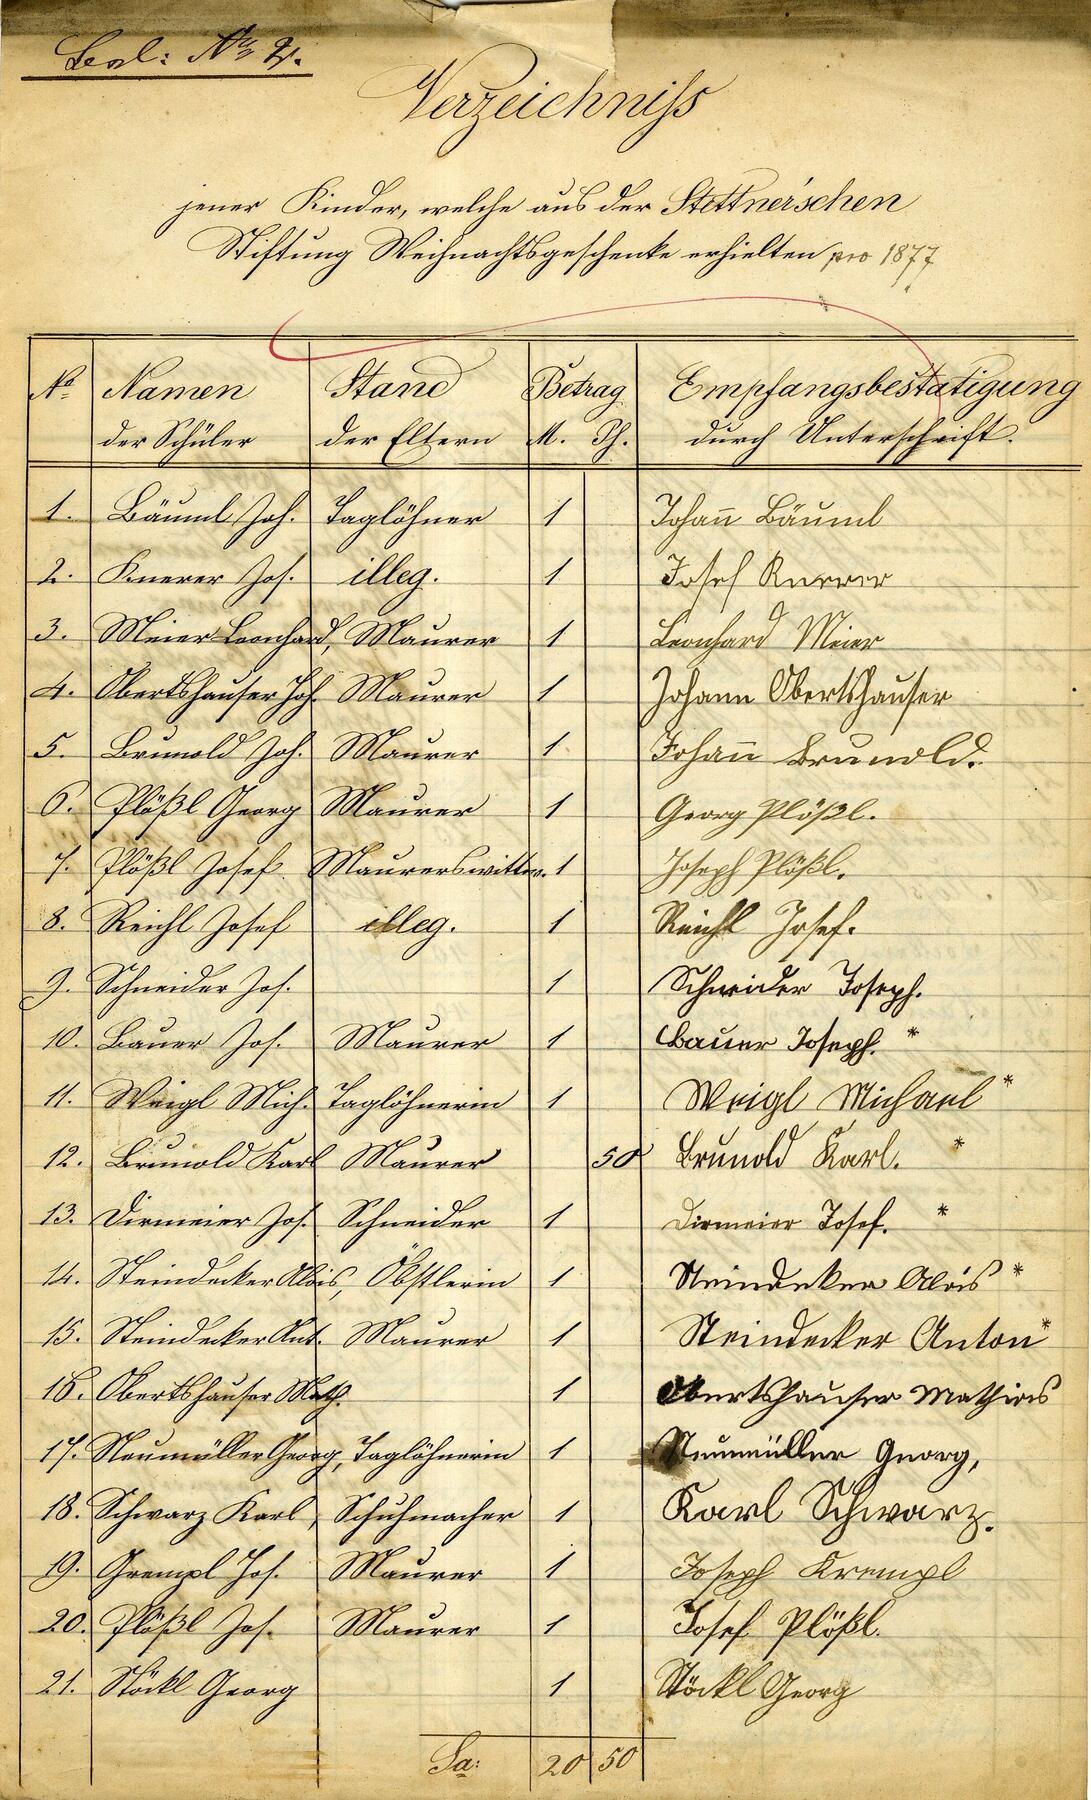 Beil: No 2.
Verzeichniss
jener Kinder, welche aus der Stettner'schen
Stiftung Weihnachtsgeschenke erhielten pro 1877
No Namen Stand Betrag Empfangsbestätigung
der Schüler der Eltern M. Pf. durch Unterschrift.
1. Bäuml Joh. Taglöhner 1 Johañ Bäuml
2. Knerer Jos. illeg. 1 Josef Knerer
3. Meier Leonhard, Maurer 1 Leonhard Meier
4. Obertshauser Joh. Maurer 1 Johann Obertshauser
5. Brunold Joh. Maurer 1 Johañ Brunold.
6. Plößl Georg Maurer 1 Georg Plößl.
7. Plößl Josef. Maurerswittw. 1 Joseph Plößl.
8. Reichl Josef illeg. 1 Reichl Josef.
9. Schneider Jos. 1 Schneider Joseph.
10. Bauer Jos. Maurer 1 Bauer Joseph. *
11. Weigl Mich. Taglöhnerin 1 Weigl Michael *
12. Brunold Karl Maurer 50 Brunold Karl. *
13. Dirmeier Jos. Schneider 1 Dirmeier Josef. *
14. Steindecker Alois, Obstlerin 1 Steindeker Alois *
15. Steindecker Ant. Maurer 1 Steindecker Anton *
16. Obertshauser Math. 1 Obertshauser Mathias
17. Neumüller Georg, Taglöhnerin 1 Neumüller Georg,
18. Schwarz Karl, Schuhmacher 1 Karl Schwarz.
19. Grempl Jos. Maurer 1 Joseph Krempl
20. Plößl Jos. Maurer 1 Josef Plößl.
21. Stöckl Georg 1 Stöckl Georg
Sa: 20 50